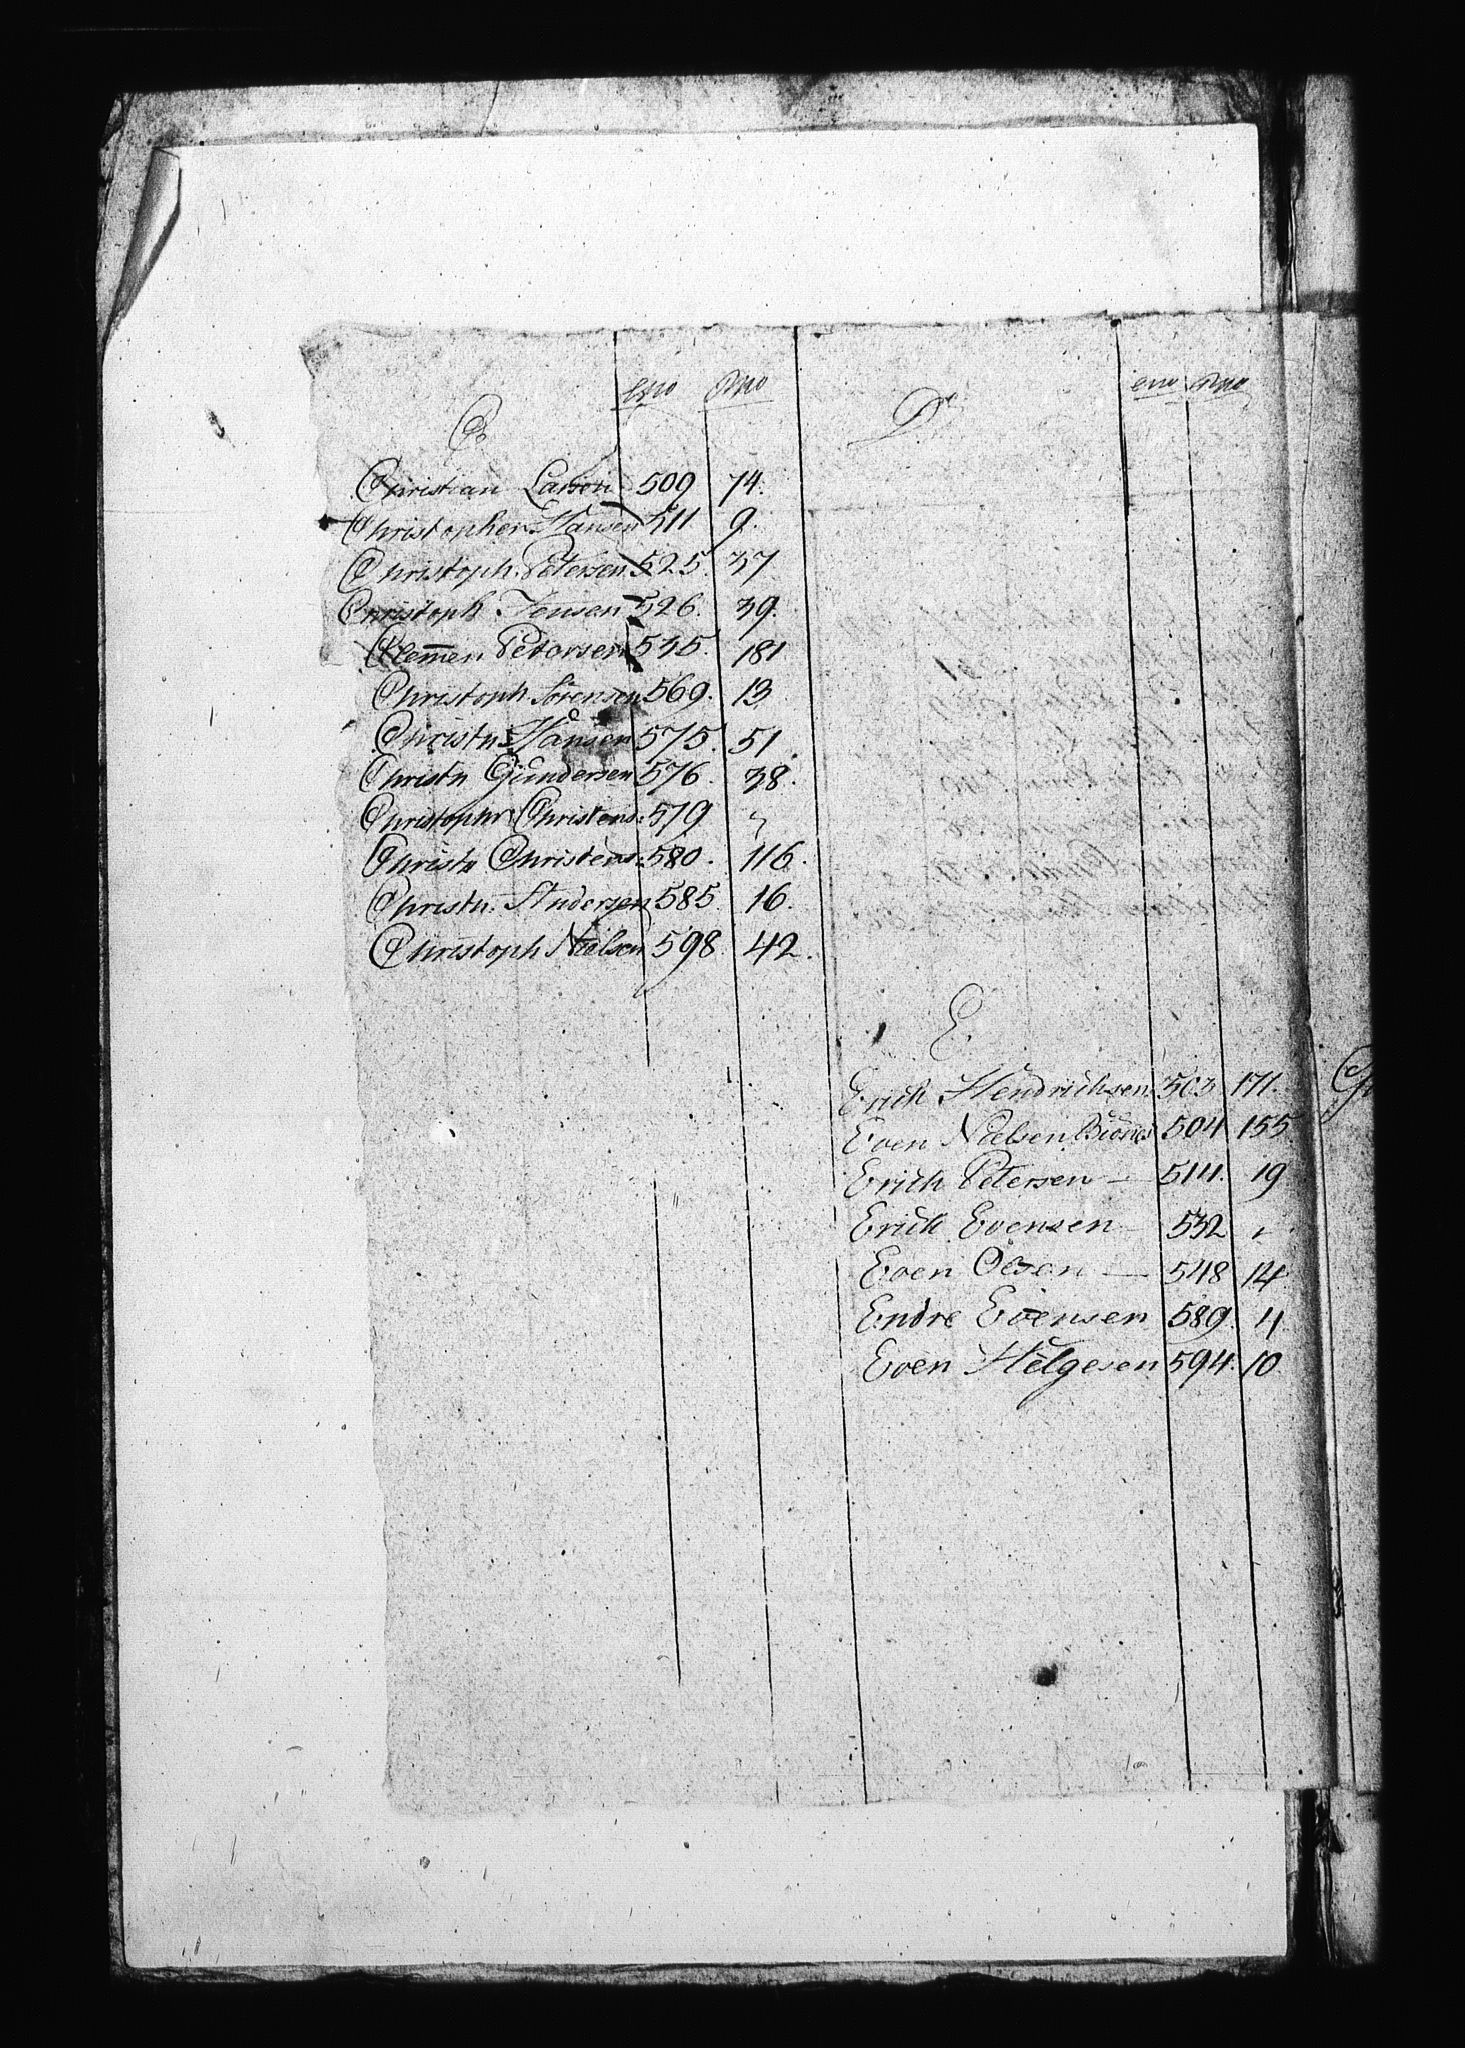 C.
Christian Larsen 509 74.
Christopher Hansen 511 9.
Christoph. Petersen 525. 37
Christoph Jensen 526. 39.
Clem̅en Petersen 535. 181
Christoph Sörensen 569. 13
Christn Hansen 575. 51.
Christn Gundersen 576. 38.
Christophr Christens: 579 "
Christn Christens: 580. 116.
Christn. Andersen 585 16.
Christoph Nielsen 598. 42.
D.
E.
Erich Hendrichsen 503 171.
Even Nielsen 504 155
Erich Petersen — 514. 19
Erich Evensen — 532 "
Even Olsen — 548 14
Endre Evensen 589. 4.
Even Helgesen 594. 10.